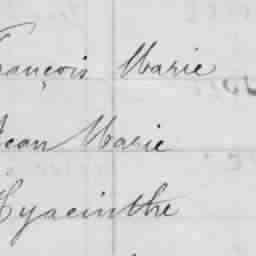 François Marie
Jean Marie
Hyacinthe